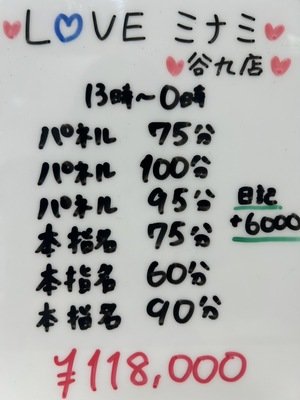 LOVE ミナミ
谷九店
13時〜0時
パネル 75分
パネル 100分
パネル 95分
本指名 75分
本指名 60分
本指名 90分
日記
+6000
¥118,000